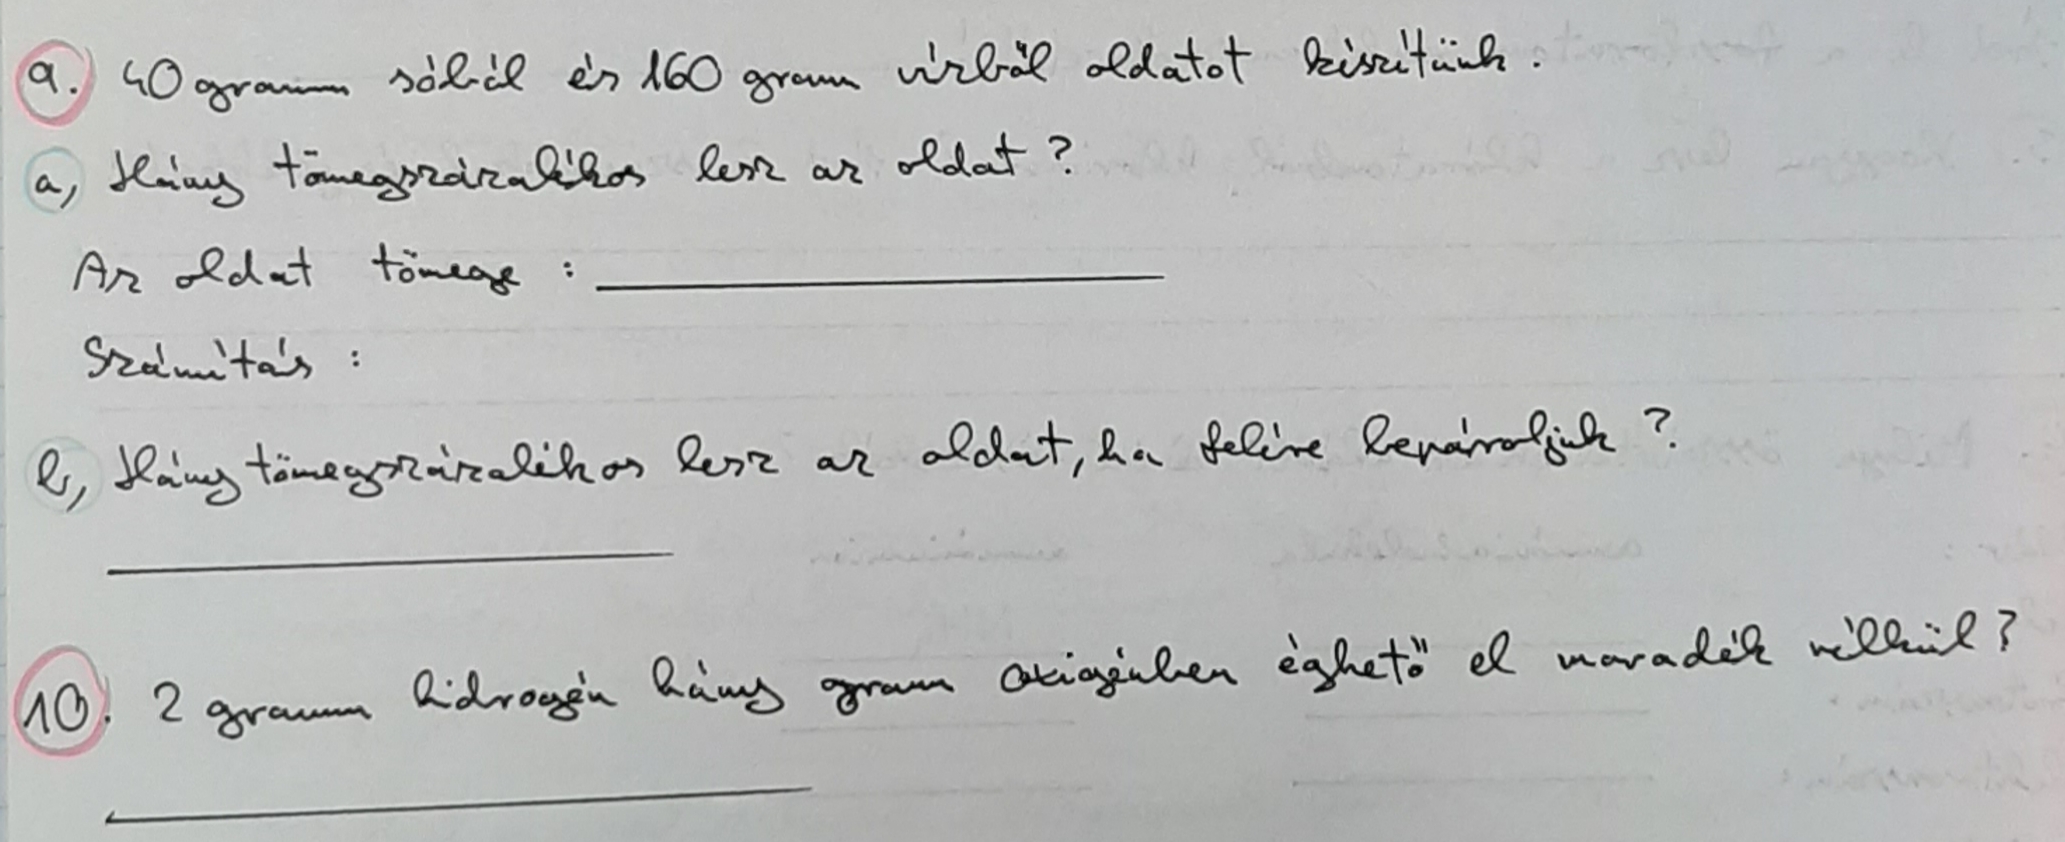 9. 40 gramm sóból és 160 gramm vízből oldatot készítünk.
a, Hány tömegszázalékos lesz az oldat?
Az oldat tömege :
Számítás :
b, Hány tömegszázalékos lesz az oldat, ha felére bepároljuk?
10. 2 gramm hidrogén hány gramm oxigénben éghető el maradék nélkül?